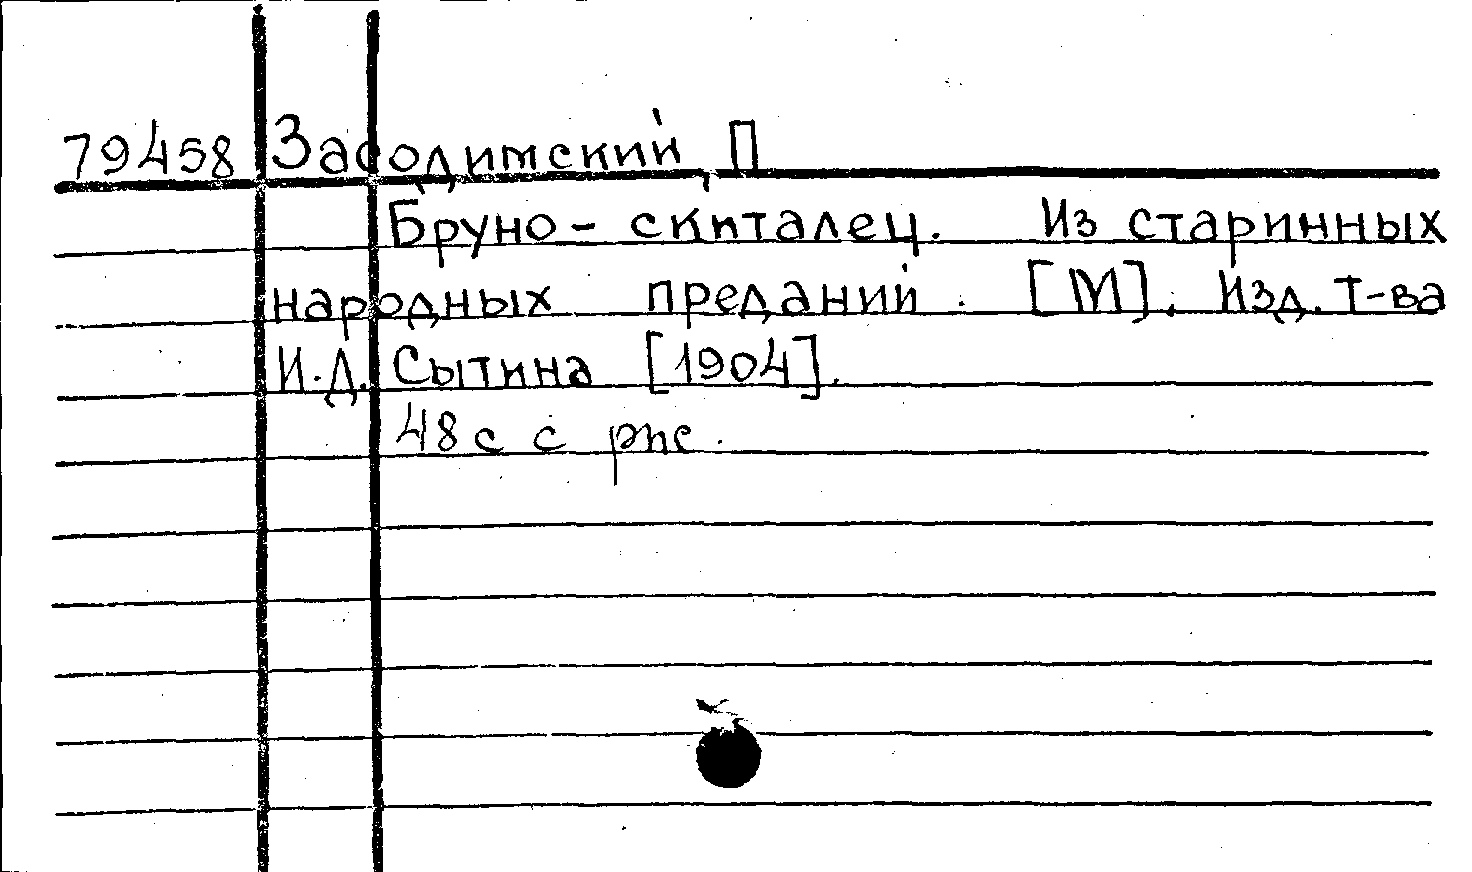 79458 Засодимский, П
Бруно - скиталец. Из старинных
народных преданий. [М], Изд. т-ва
И.Д. Сытина [1904].
48 с с рис.